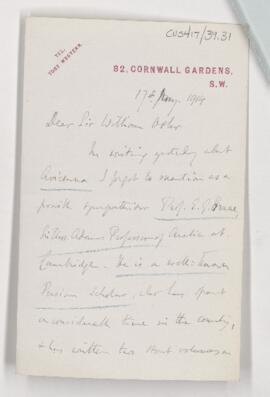 CUS417/39.31
TEL.
7087 WESTERN.
82, CORNWALL GARDENS,
S.W.
17th May 1919
Dear Sir William Osler
In writing yesterday about
Avicenna I forgot to mention as a
possible sympathiser Prof. E. G. Browne,
Sir Thos. Adams Professor of Arabic at
Cambridge. He is a well-known
Persian Scholar, who has spent
a considerable time in the country,
& has written two stout volumes on